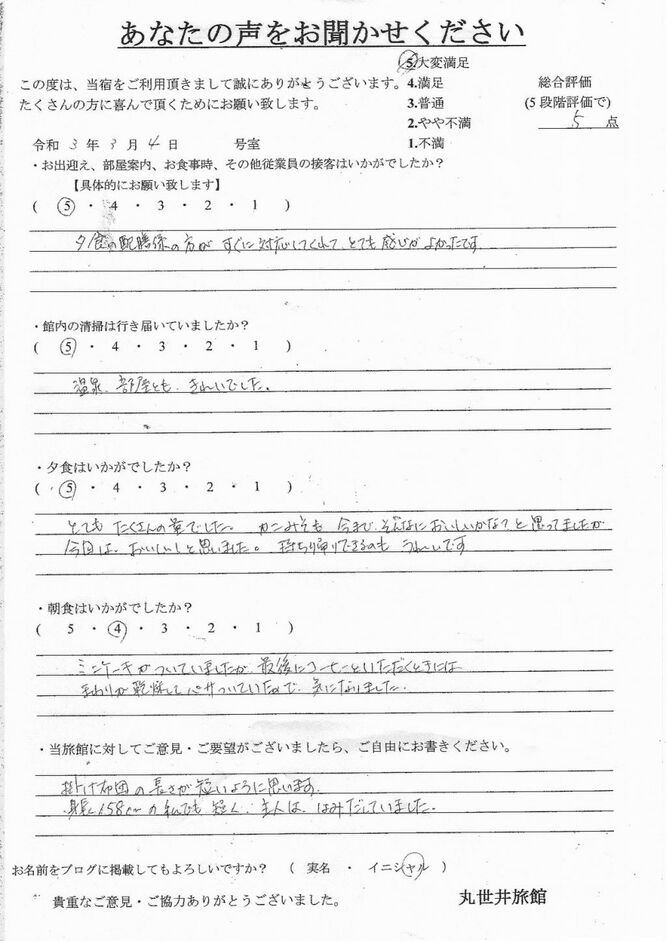 あなたの声をお聞かせください
この度は、当宿をご利用頂きまして誠にありがとうございます。
たくさんの方に喜んで頂くためにお願い致します。
5.大変満足
4.満足
3.普通
2.やや不満
1.不満
総合評価
(5段階評価で)
5 点
令和 3 年 3 月 4 日 号室
・お出迎え、部屋案内、お食事時、その他従業員の接客はいかがでしたか?
【具体的にお願い致します】
( 5 ・ 4 ・ 3 ・ 2 ・ 1 )
夕食の配膳係の方が すぐに対応してくれて、とても感じがよかったです。
・館内の清掃は行き届いていましたか?
( 5 ・ 4 ・ 3 ・ 2 ・ 1 )
温泉、部屋とも、きれいでした。
・夕食はいかがでしたか?
( 5 ・ 4 ・ 3 ・ 2 ・ 1 )
とても たくさんの量でした。 カニみそも 今まで、そんなにおいしいかな?と思ってましたが
今回は、おいしいと思いました。 持ち帰りできるのも うれしいです
・朝食はいかがでしたか?
( 5 ・ 4 ・ 3 ・ 2 ・ 1 )
ミニケーキがついていましたが、最後にコーヒーといただくときには
まわりが乾燥してパサついていたので、気になりました。
・当旅館に対してご意見・ご要望がございましたら、ご自由にお書きください。
掛け布団の長さが短いように思います。
身長158cmの私でも短く、主人は、はみだしていました。
お名前をブログに掲載してもよろしいですか? ( 実名 ・ イニシャル )
貴重なご意見・ご協力ありがとうございました。
丸世井旅館